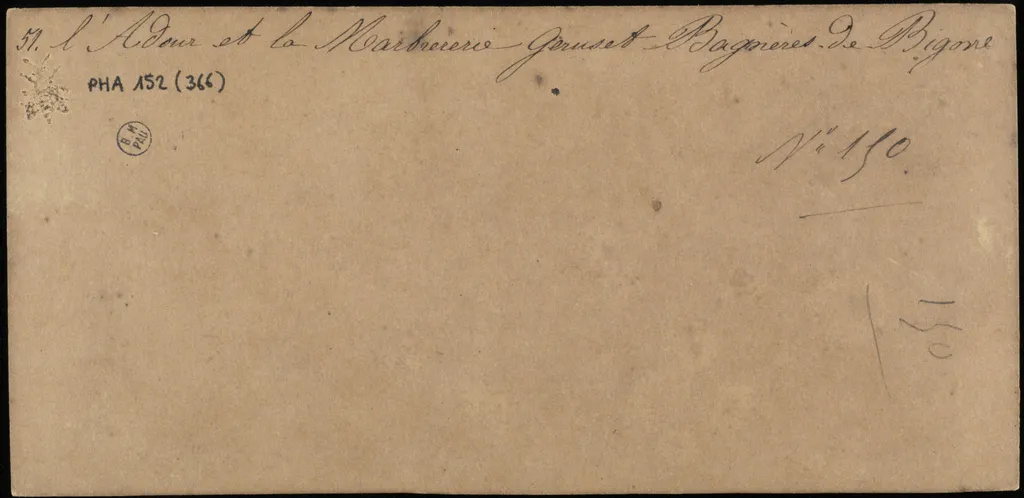 51. l'Adour et la Marbrererie Geruset Bagnères-de Bigorre
PHA 152 (366)
B. M
PAU
Nº 150
150